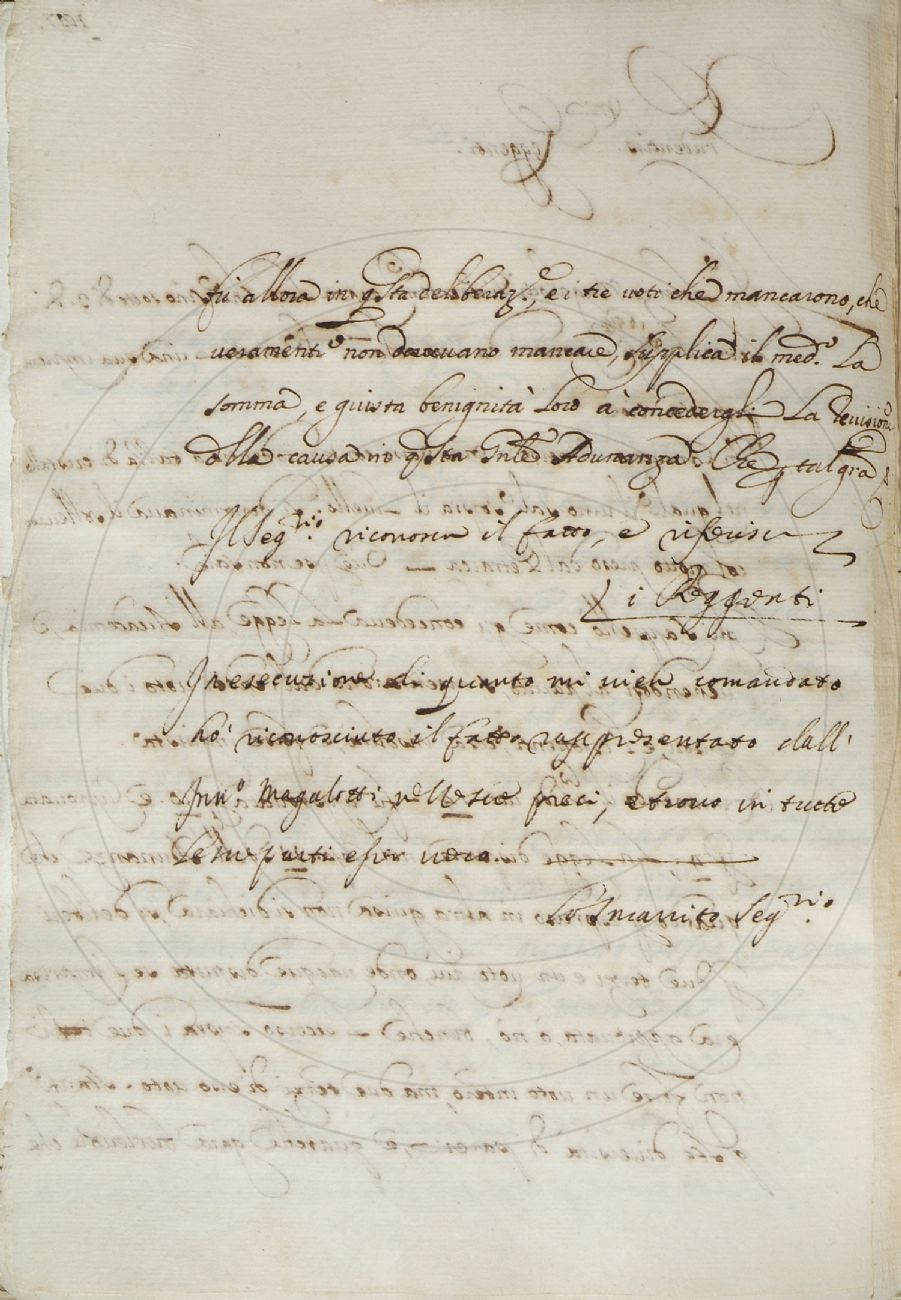 fù allora in q.sta deliberaz.e, e i tre voti che mancarono, che
veramente non dovevano mancare, supplica il med.o La
somma, e giusta benignità Loro à concedergli La revisione
della causa in q.sta Gnle Adunanza. Che p tal gra
Il Seg.rio riconosca il fatto, e riferisca
i Reggenti
In esecuzione di quanto mi vien comandato
hò riconosciuto il fatto rappresentato dall'
Inn.o Magalotti nelle sue preci, e trovo in tutte
le sue parti esser vero.
Lo Incavvito Seg.rio